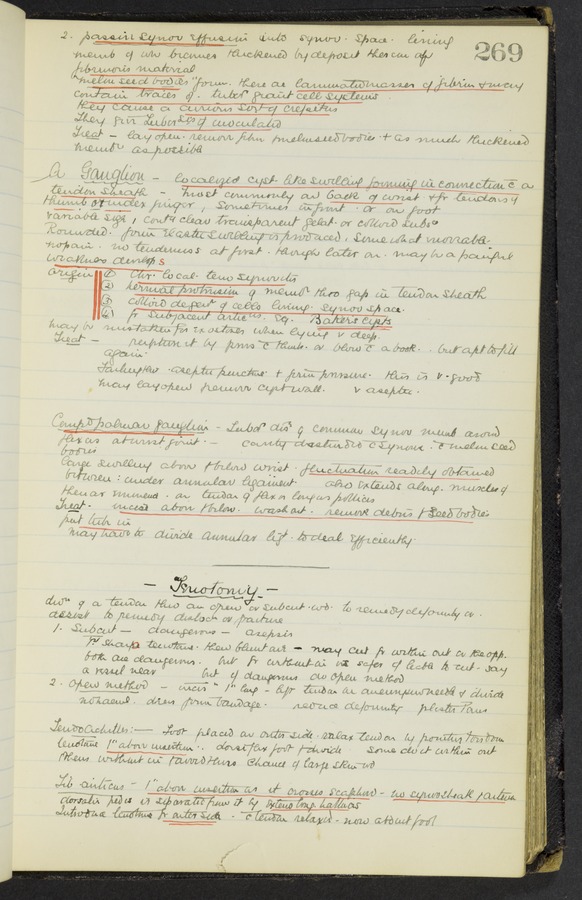 269
2. passive synov effusion into synov. space. lining
memb of wh becomes thickened by deposit thereon of
fibrinous material
"melon seed bodies" form. these are laminated masses of fibrin & may
contain traces of tuber giant cell systems
They cause a curious sort of crepitus
They give tuberses if inoculated
Treat - lay open. remove fibrin melon seed bodies + as much thickened
membr as possible
A Ganglion - localized cyst like swelling forming in connection c a
tendon sheath - most commonly on back of wrist & fr tendons of
thumb or index finger, sometimes in front. or on foot
variable size, cont clear transparent gelat. or colloid subs
Rounded. firm elastic swelling is produced, somewhat movable
no pain. no tenderness at first. though later on. may be a painful
weakness develops
origin (1) Chr. local. teno synovitis
(2) hernial protrusion of membr thro gap in tendon sheath
(3) colloid degen of cells lining synov space.
(4) fr subjacent artic ns. eg. Bakers Cysts
may be mistaken for exostoses when lying v deep.
Treat - rupture it by press c thumb. or blow c a book.. but apt to fill
again
Failing this - aseptic puncture & firm pressure. this is v. good
may lay open & remove cyst wall. v aseptic.
Compd palmar ganglion - Tuber dis of common synov memb around
flexors at wrist joint. - cavity distended c synovia. c melon seed
bodies
large swelling above & below wrist. fluctuation readily obtained
between: under annular ligament also extends along. muscles of
thenar eminence. or tendon of flexor longus pollicis
Treat. - incise above & below. wash out. remove debris & seed bodies
put tube in
may have to divide annular ligt. to deal efficiently
- Tenotomy -
divn of a tendon thro an open or subcut. wd. to remedy deformity or
assist to remedy disloc or fracture
1. Subcut - dangerous - asepsis
1st sharp tenotome. then blunt one - may cut fr within out or the opp.
both are dangerous. but fr without in is safer if liable to cut. say
a vessel near but if dangerous do open method
2. Open method - incisn 1" long - lift tendon on aneurysm needle & divide
horizontal. dress firm bandage. reduce deformity plaster Paris
Tendo Achilles: - Foot placed on outer side. relax tendon by pointing toes down
tenotome 1" above insertion. dorsiflex foot & divide some do it within out
others without in
Tib anticus - 1" above insertion as it crosses scaphoid - no synov sheath, artery
dorsalis pedis is separated from it by extens long hallucis
Introduce tenotome fr outer side. c tendon relaxed. now abduct foot